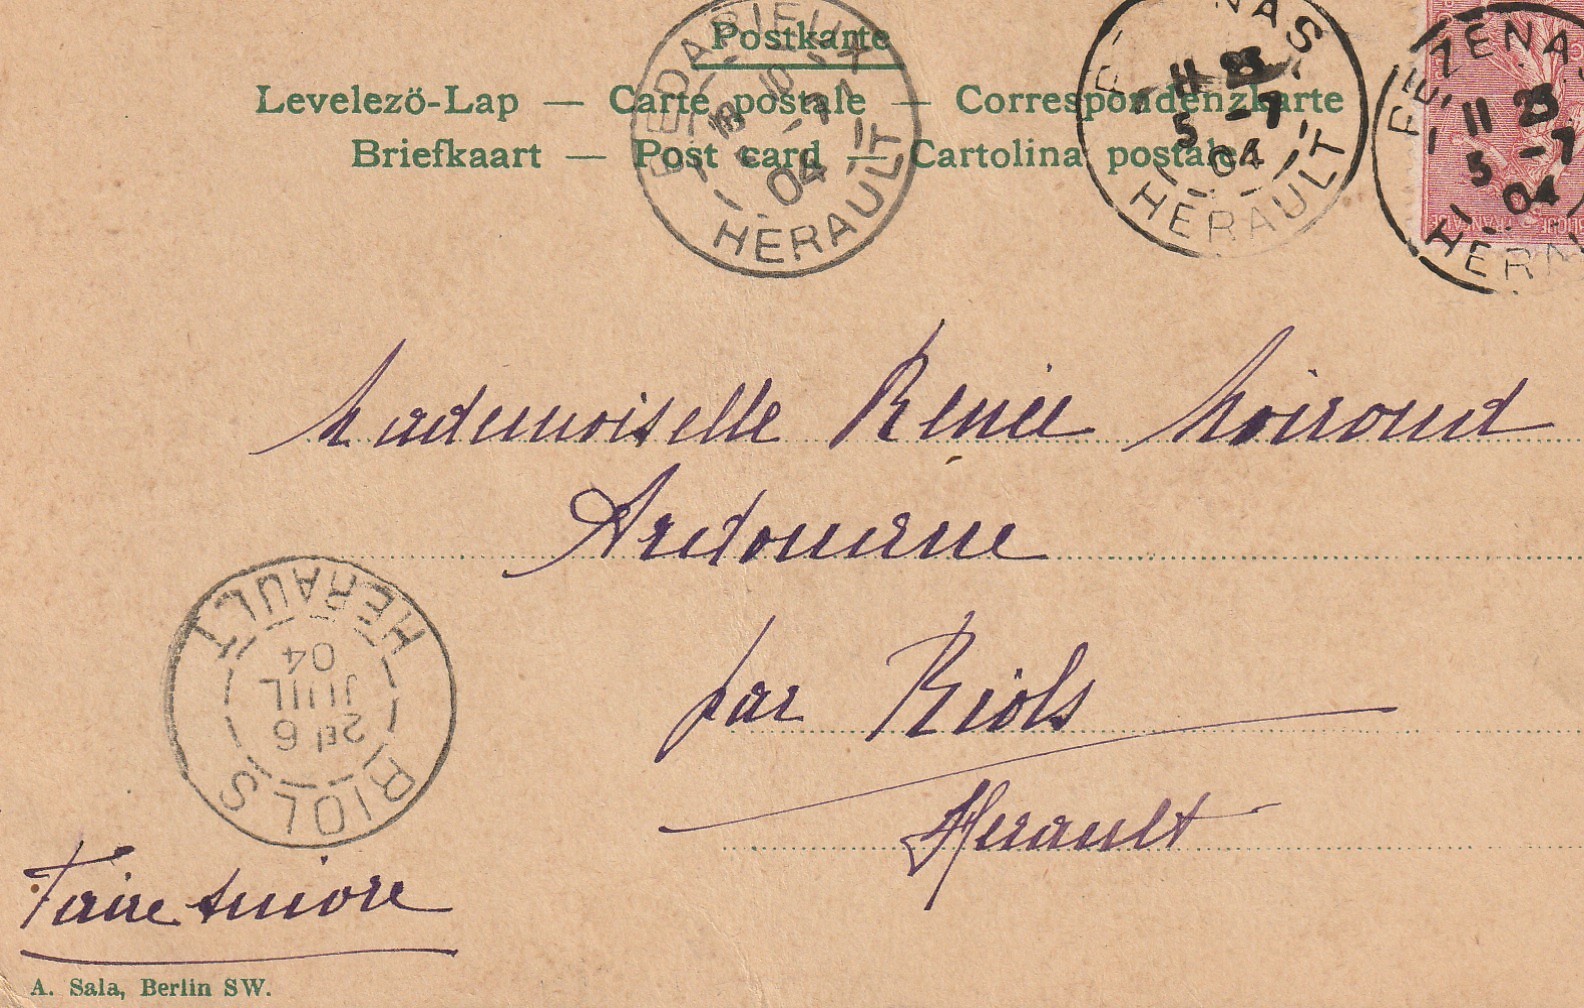 Postkarte
Levelező-Lap — Carte postale — Correspondenzkarte
Briefkaart — Post card — Cartolina postale
BEDARIEUX
18 10
5 -7
04
HERAULT
PEZENAS
11 23
5 -7
04
HERAULT
PEZENAS
11 23
5 -7
04
HERAULT
Mademoiselle Renée Moiroud
Ardouane
par Riols
Herault
RIOLS
2E 6
JUIL
04
HERAULT
Faire suivre
A. Sala, Berlin SW.